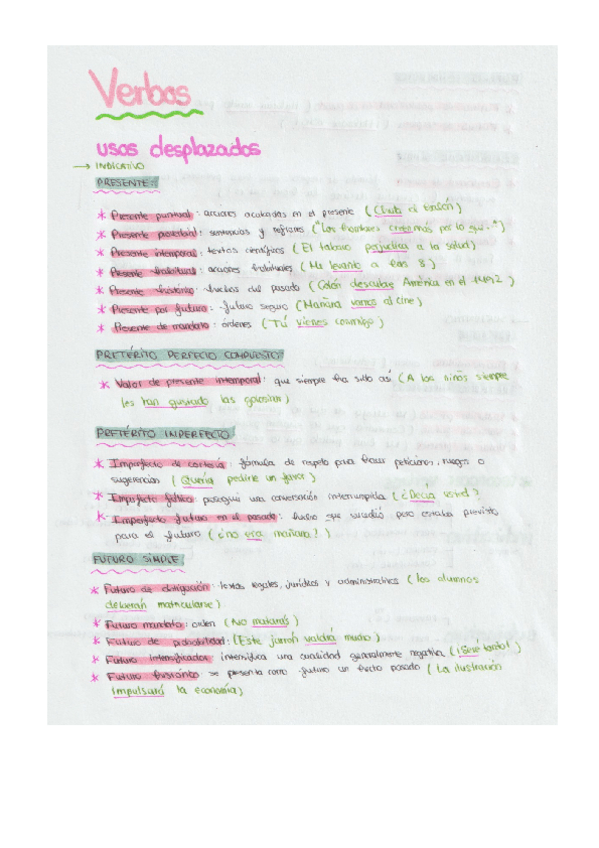 Verbos
usos desplazados
→ INDICATIVO
PRESENTE:
* Presente puntual: acciones acabadas en el presente (Chuta el balón)
* Presente proverbial: sentencias y refranes ("Los hombres por lo que..")
* Presente intemporal: textos científicos (El tabaco perjudica a la salud)
* Presente habitual: acciones habituales (Me levanto a las 8.)
* Presente histórico: hechos del pasado (Colón descubre América en el 1492)
* Presente por futuro: futuro seguro (Mañana vamos al cine)
* Presente de mandato: órdenes (Tú vienes conmigo)
PRETÉRITO PERFECTO COMPUESTO:
* Valor de presente intemporal: que siempre ha sido así (A los niños siempre
les han gustado las golosinas)
PRETÉRITO IMPERFECTO
* Imperfecto de cortesía: fórmula de respeto para hacer peticiones, ruegos o
sugerencias (Quería pedirte un favor)
* Imperfecto fático: proseguir una conversación interrumpida (¿Decía usted)
* Imperfecto futuro en el pasado: hecho que sucedió pero estaba previsto
para el futuro (¿no era mañana?)
FUTURO SIMPLE
* Futuro de obligación: textos legales, jurídicos y administrativos (los alumnos
deberán matricularse)
* Futuro mandato: orden (No matarás)
* Futuro de probabilidad: (Este jarrón valdrá mucho)
* Futuro intensificador: intensifica una cualidad generalmente negativa (¡Será tonto!)
* Futuro histórico: se presenta como futuro un hecho pasado (La ilustración
impulsará la economía)